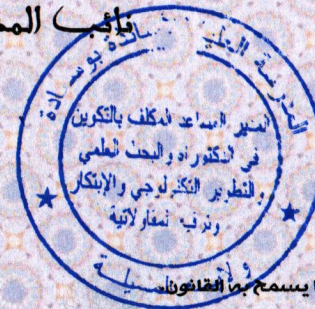 نائب
المدرسة العليا بوسعادة
المدير المساعد المكلف بالتكوين
في الدكتوراه والبحث العلمي
والتطوير التكنولوجي والإبتكار
وترقية المقاولاتية
ولاية المسيلة
يسمح به القانون.